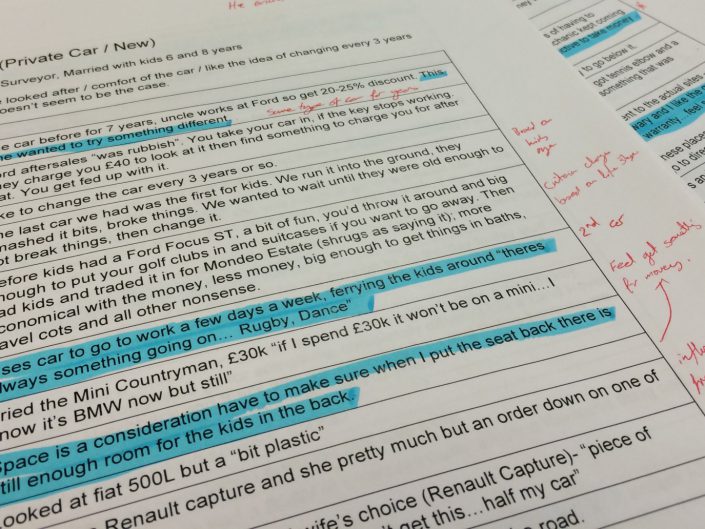 He
(Private Car / New)
Surveyor. Married with kids 6 and 8 years
looked after / comfort of the car / like the idea of changing every 3 years
oesn't seem to be the case.
e car before for 7 years, uncle works at Ford so get 20-25% discount. This
he wanted to try something different
Same type of car for years
ord aftersales "was rubbish". You take your car in, if the key stops working.
hey charge you £40 to look at it then find something to charge you for after
at. You get fed up with it.
ke to change the car every 3 years or so.
he last car we had was the first for kids. We run it into the ground, they
mashed it bits, broke things. We wanted to wait until they were old enough to
ot break things, then change it.
efore kids had a Ford Focus ST, a bit of fun, you'd throw it around and big
nough to put your golf clubs in and suitcases if you want to go away. Then
ad kids and traded it in for Mondeo Estate (shrugs as saying it); more
conomical with the money, less money, big enough to get things in baths,
avel cots and all other nonsense.
ses car to go to work a few days a week, ferrying the kids around "theres
lways something going on... Rugby, Dance"
ried the Mini Countryman, £30k "if I spend £30k it won't be on a mini...I
now it's BMW now but still"
Space is a consideration have to make sure when I put the seat back there is
till enough room for the kids in the back.
ooked at fiat 500L but a "bit plastic"
Renault capture and she pretty much but an order down on one of
wife's choice (Renault Capture)- "piece of
't get this...half my car"
e road.
Based on
kids
age
based on life stage
2nd car
Feel get
for money.
s of having to
hanic kept coming
ective to take money
l to go below it.
got tennis elbow and a
something that was
ent to the actual sites
wary and I like the
warranty - feel
hese places
o to direc
s and